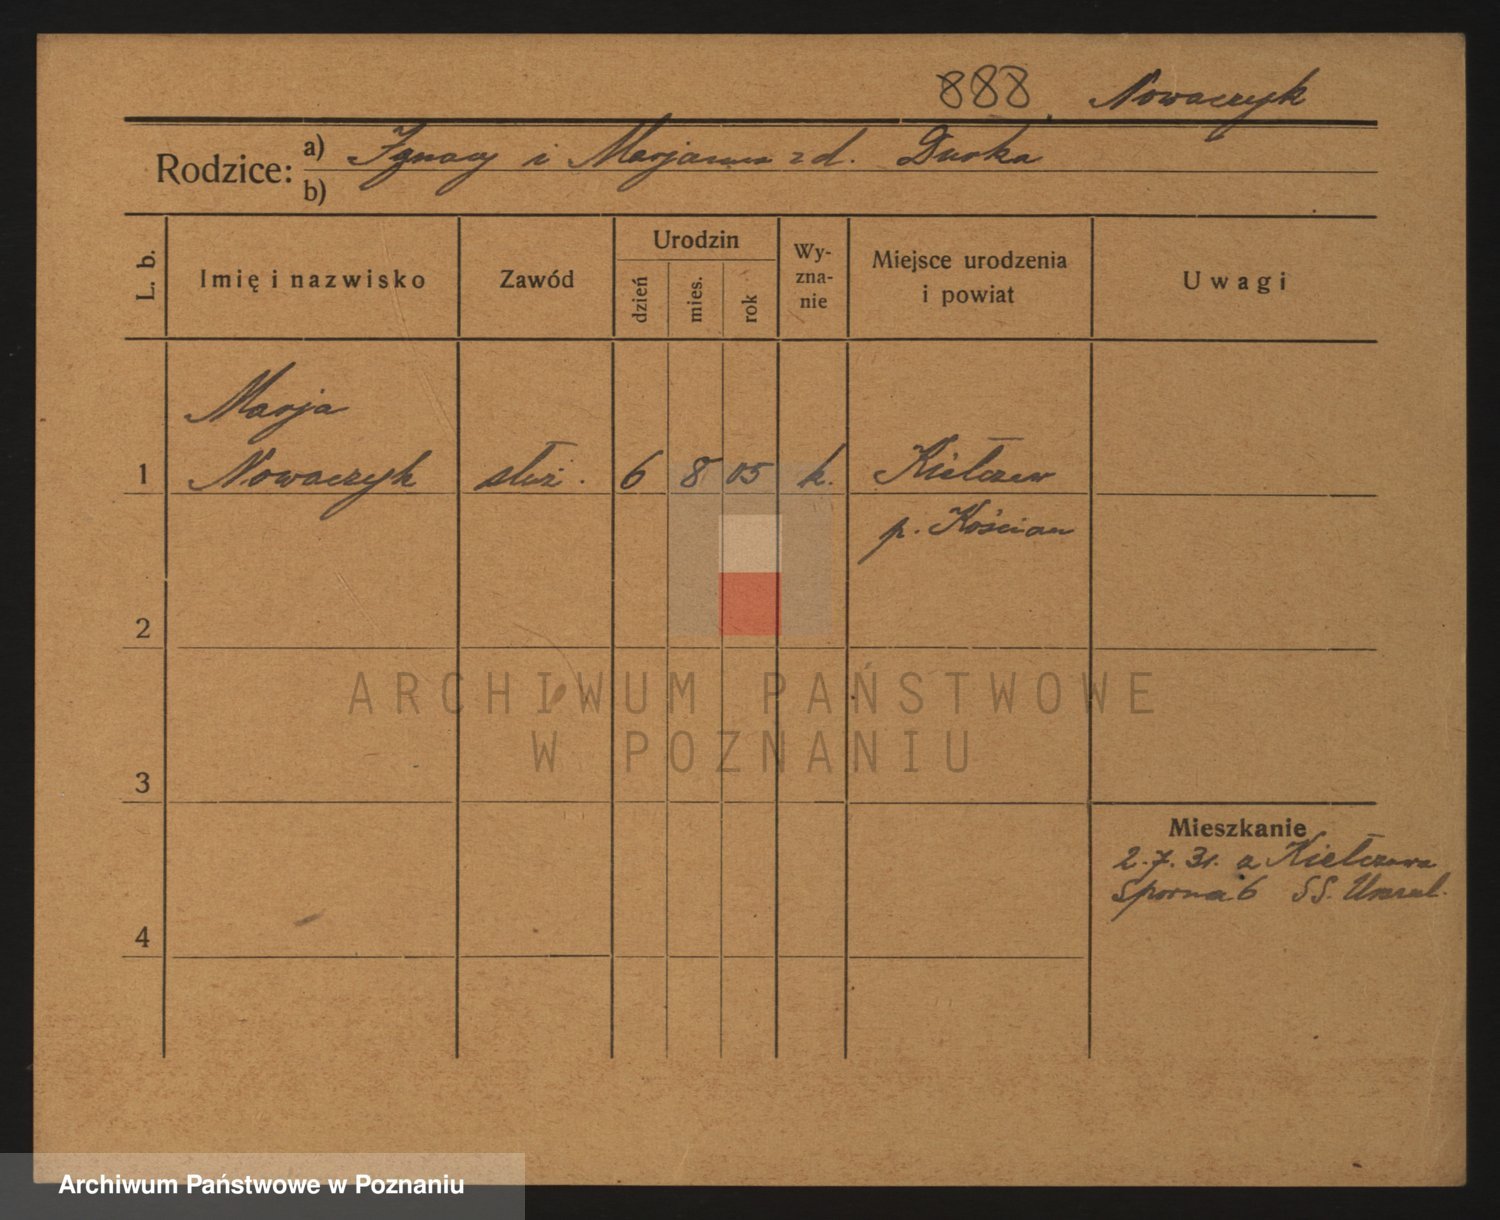 888 Nowaczyk
Rodzice: a) Ignacy i Marjanna z d. Durka
b)
L. b.
Imię i nazwisko
Zawód
Urodzin
dzień
mies.
rok
Wy-
zna-
nie
Miejsce urodzenia
i powiat
Uwagi
Marja
1 Nowaczyk służ. 6 8 05 k. Kiełczew
p. Kościan
2
3
4
Mieszkanie
2.7.31. a Kiełczewa
Sporna 6 SS. Urszul.
ARCHIWUM PAŃSTWOWE
W POZNANIU
Archiwum Państwowe w Poznaniu